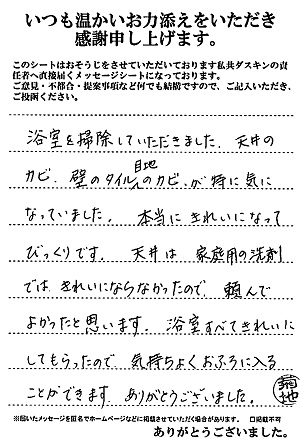 いつも温かいお力添えをいただき
感謝申し上げます。
このシートはおそうじをさせていただいております私共ダスキンの責
任者へ直接届くメッセージシートになっております。
ご意見・不都合・提案事項など何でも結構ですので、ご記入いただき、
ご投函ください。
浴室を掃除していただきました。天井の
カビ、壁のタイル目地のカビ、が特に気に
なっていました。本当にきれいになって
びっくりです。天井は家庭用の洗剤
では きれいにならなかったので、頼んで
よかったと思います。浴室すべてきれいに
してもらったので 気持ちよくおふろに入る
ことができます。ありがとうございました。
菊地
※届いたメッセージを匿名でホームページなどに掲載させていただく場合があります。 □掲載不可
ありがとうございました。